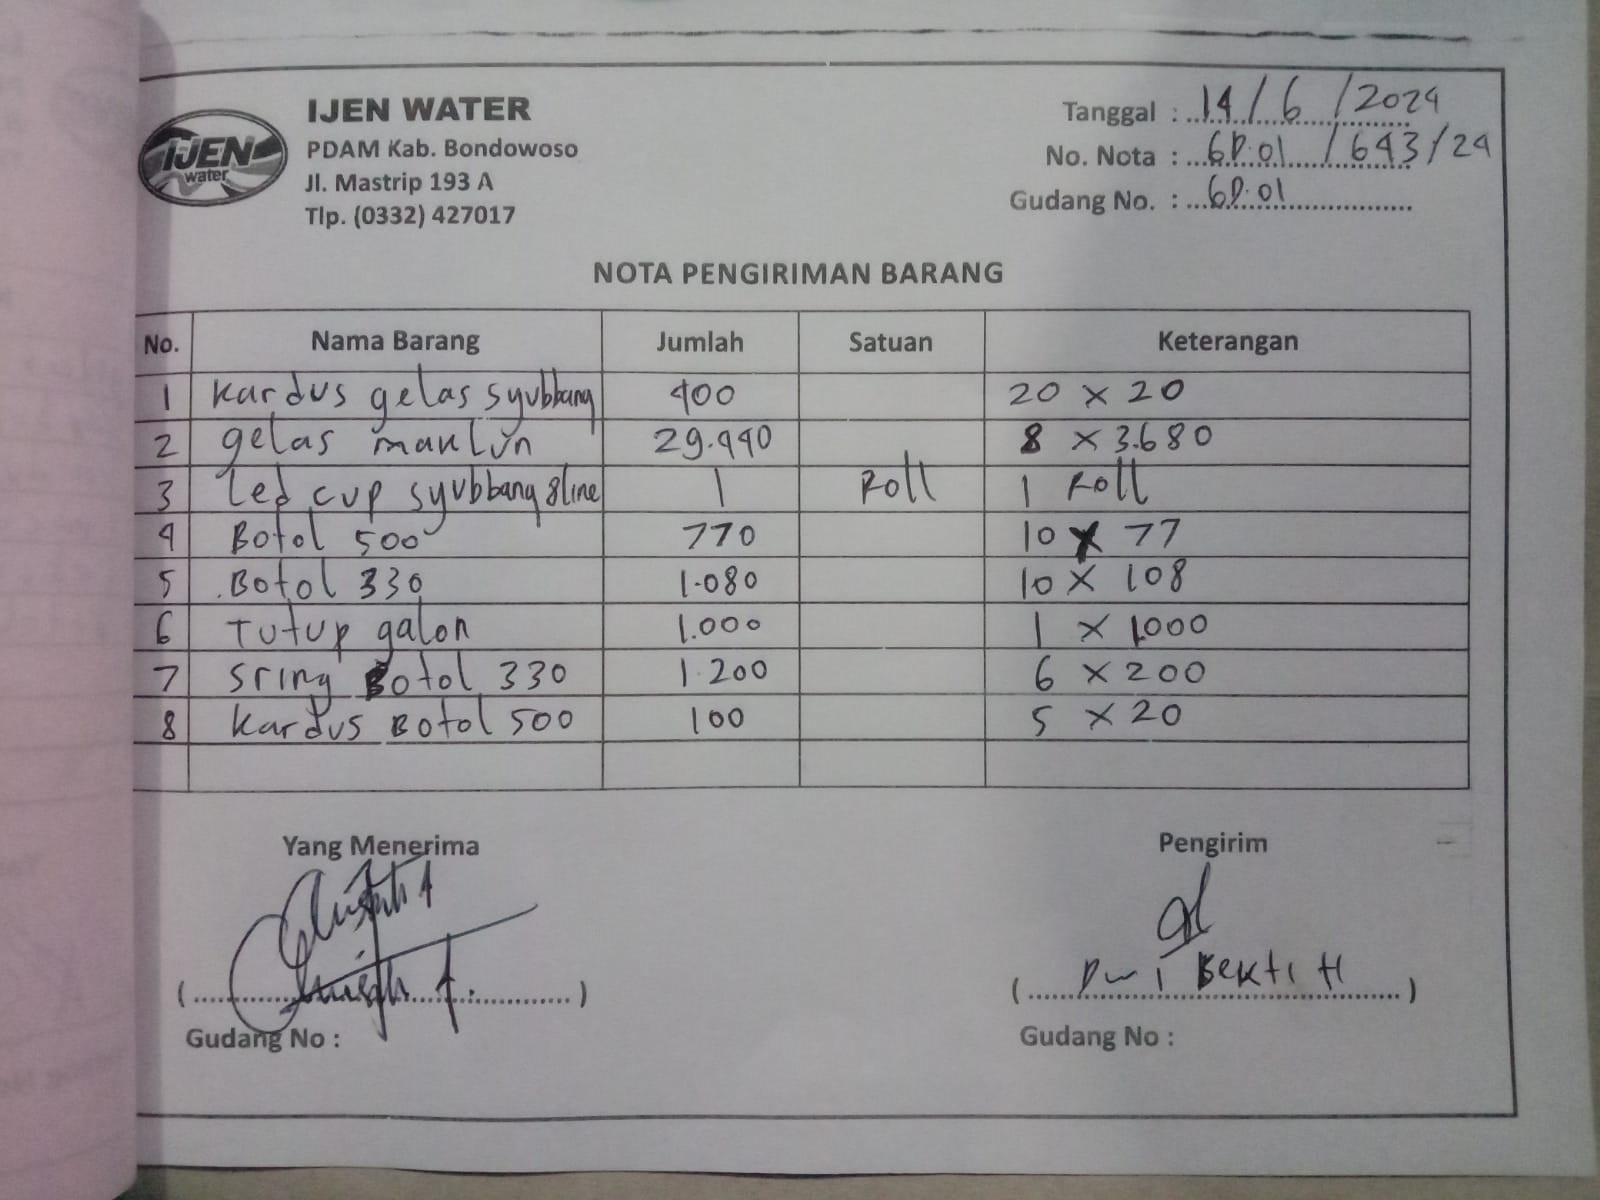 IJEN WATER
PDAM Kab. Bondowoso
Jl. Mastrip 193 A
Tlp. (0332) 427017
IJEN
water
Tanggal : 14/6/2024
No. Nota : GD.01/643/24
Gudang No. : GD.01
NOTA PENGIRIMAN BARANG
No. Nama Barang Jumlah Satuan Keterangan
1 kardus gelas syubbang 400 20 x 20
2 gelas maklun 29.440 8 x 3.680
3 Led cup syubbang 8 line 1 Roll 1 Roll
4 Botol 500 770 10 x 77
5 Botol 330 1.080 10 x 108
6 Tutup galon 1.000 1 x 1000
7 sring Botol 330 1.200 6 x 200
8 kardus Botol 500 100 5 x 20
Yang Menerima Pengirim
( ) ( Dwi Bekti H )
Gudang No : Gudang No :